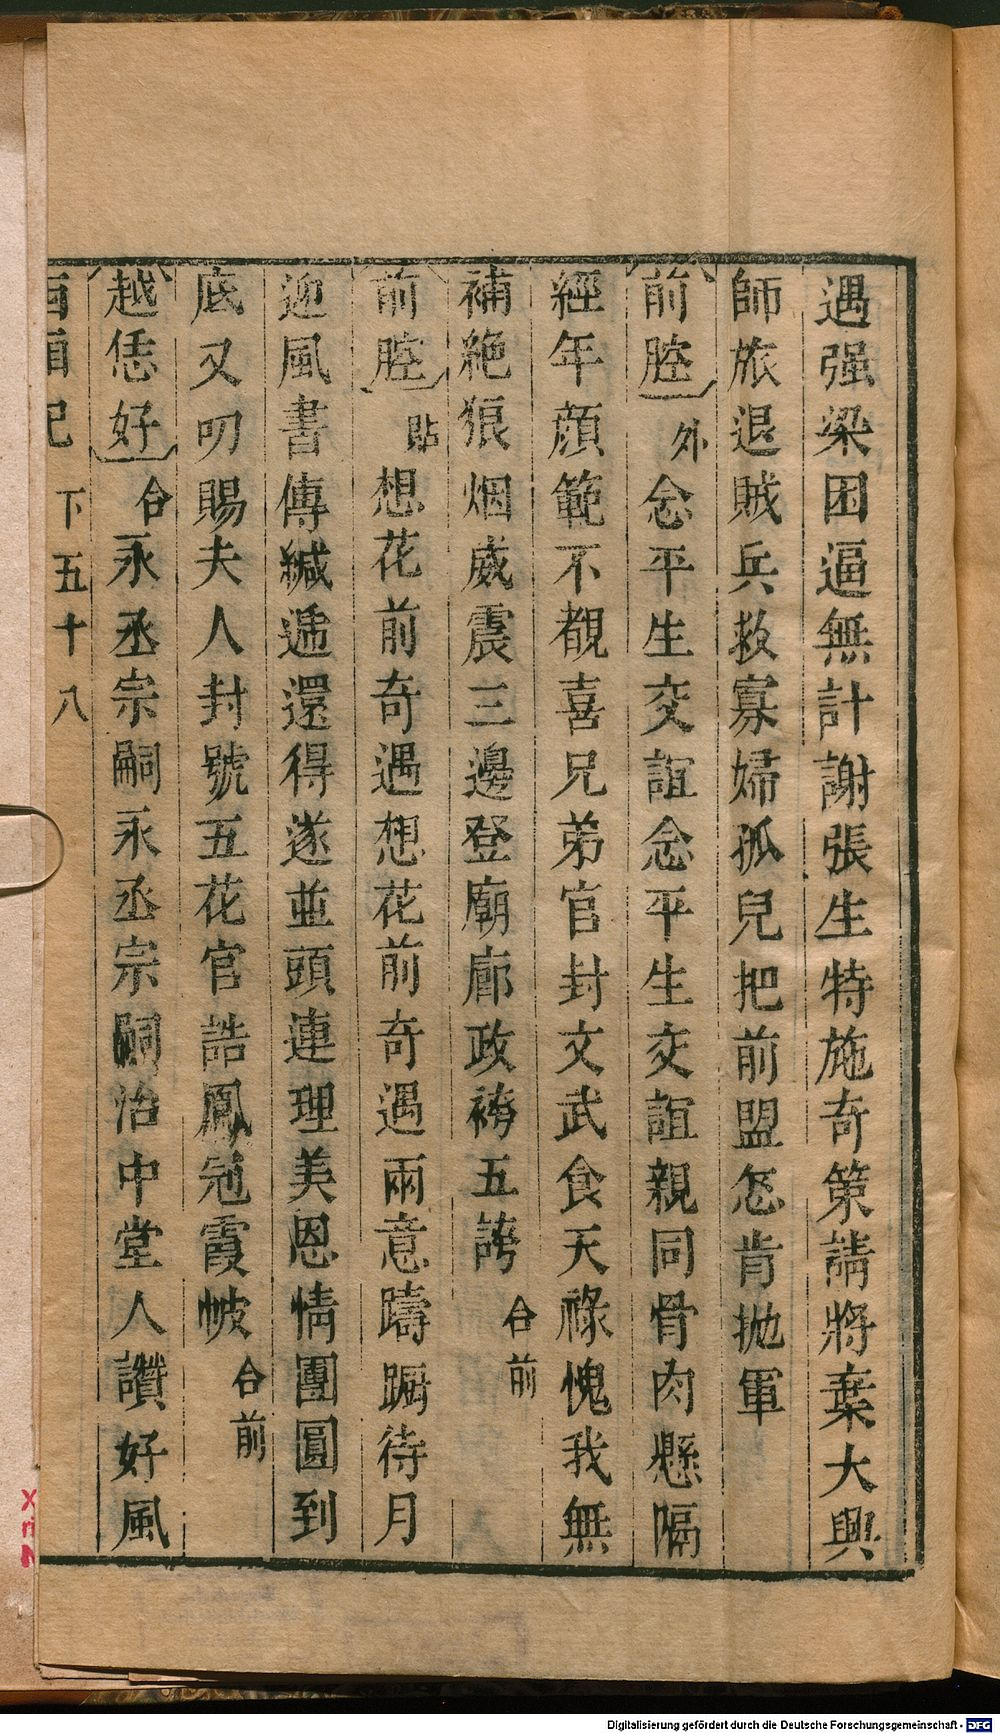 遇强梁困逼無計謝張生特施奇策請將棄大興
師旅退賊兵救寡婦孤兒把前盟怎肯抛軍
前腔 外 念平生交誼念平生交誼親同骨肉懸隔
經年顔範不覩喜兄弟官封文武食天祿愧我無
補絶狼烟威震三邊登廟廊政袴五誇 合前
前腔 貼 想花前奇遇想花前奇遇兩意躊躇待月
迎風書傳緘遞還得遂並頭連理美恩情團圓到
底又叨賜夫人封號五花官誥鳳冠霞帔 合前
越恁好 合 永丞宗嗣永丞宗嗣治中堂人讚好風
西廂記 下 五十八
Digitalisierung gefördert durch die Deutsche Forschungsgemeinschaft - DFG